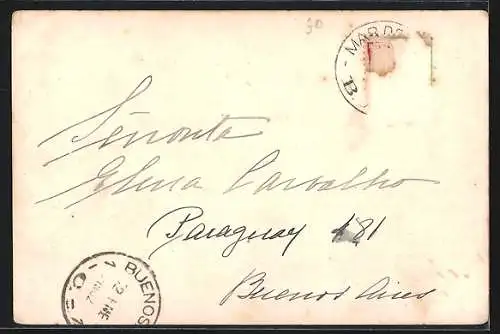 30
MAR D
B.
Señorita
Elena Carvalho
Paraguay 181
Buenos Aires
BUENOS
12 ENE